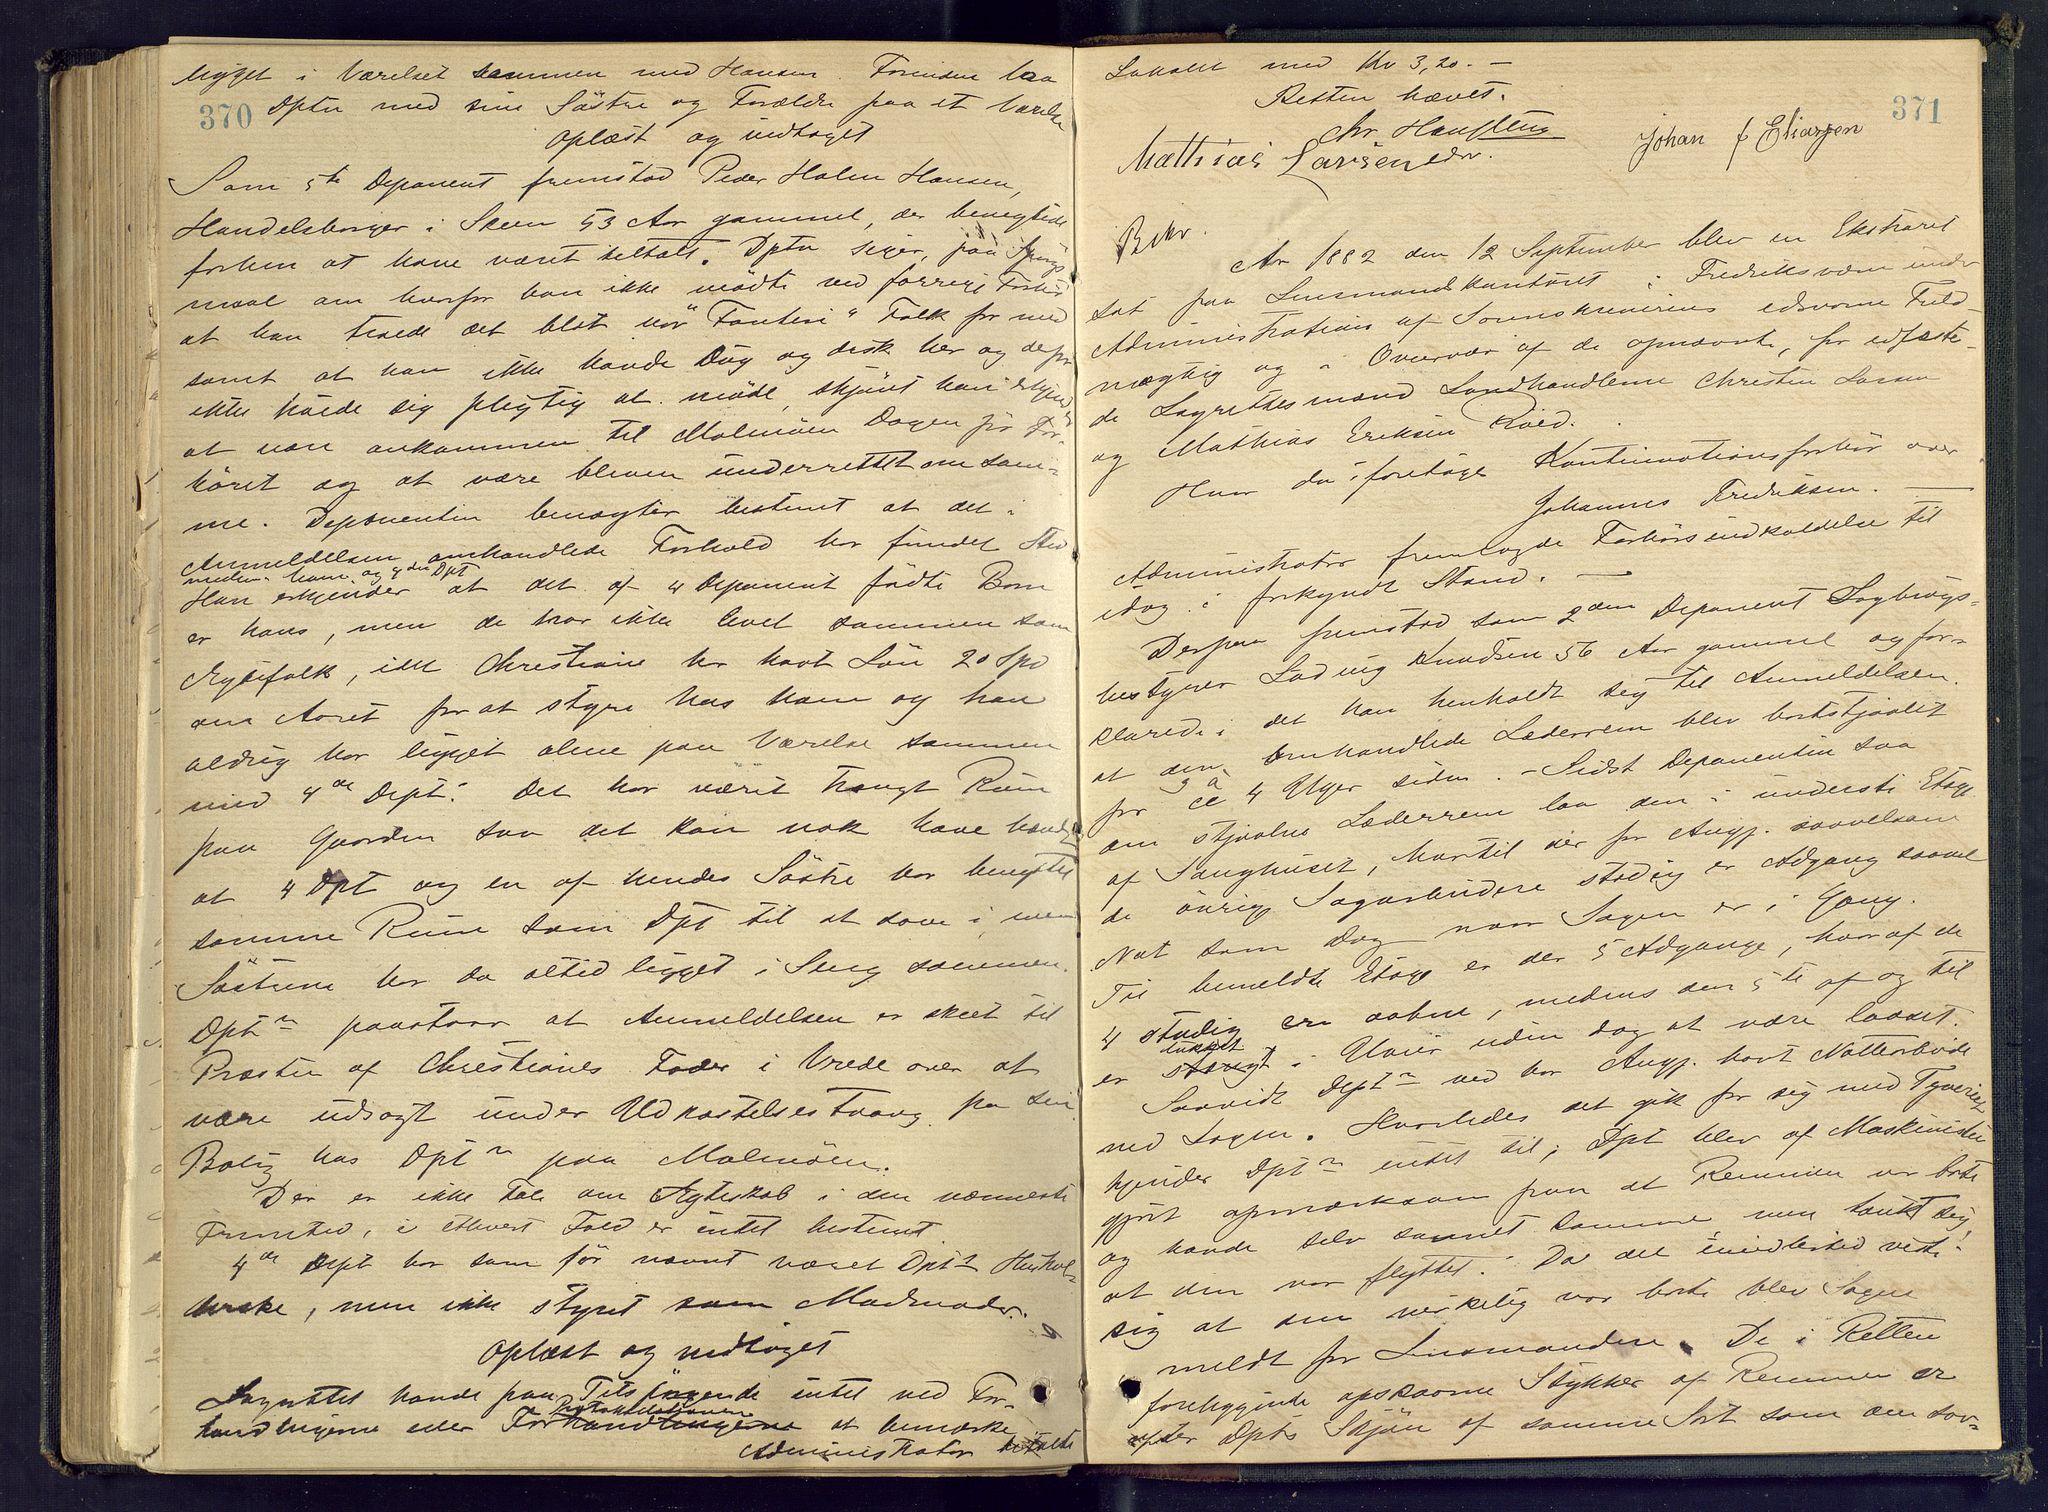 370
ligget i Værelset sammen med Hansen. Forinden laa
Dptn med sine Søstre og Forældre paa et Værelse
Oplæst og vedtaget
Som 5te Deponent fremstod Peder Holm Hansen,
Handelsborger i Skien 53 Aar gammel, der benegtede
forhen at have været tiltalt. Dptn siger, paa Spørgs
maal om hvorfor han ikke mødte ved forrige Forhør
at han troede det blot var "Fanteri" Folk for med
samt at han ikke havde Dug og disk her og derfor
ikke troede sig pligtig at møde, skjønt han erkjender
at være ankommen til Malmøen Dagen før For-
høret og at være bleven underrettet om sam-
me. Deponenten benægter bestemt at det i
Anmeldelsen omhandlede Forhold har fundet Sted
mellem ham og 4de Dpt
Han erkjender at det af 4 Deponent fødte Barn
er hans, men de har ikke levet sammen som
Ægtefolk, idet Christiane har havt Løn 20 Spd
om Aaret for at styre hus ham og han
aldrig har ligget alene paa Værelse sammen
med 4de Dept. Det har været trangt Rum
paa Gaarden saa det kan nok have hændt
at 4 Dpt og en af hendes Søstre har benyttet
samme Rum som Dpt til at sove i, men
Søstrene har da altid ligget i Seng sammen.
Dptn paastaar at Anmeldelsen er skeet til
Præsten af Christianes Fader i Vrede over at
være udsagt under Udkastelsestvang fra sin
Bolig hos Dptn paa Malmøen.
Der er ikke Tale om Ægteskab i den nærmeste
Fremtid, i ethvert Fald er intet bestemt.
4de Dpt har som før nævnt været Dptn Hushol-
derske, men ikke styret som Madmoder.
Oplæst og vedtaget
Lagrettet havde paa Tilspørgende intet ved For-
Protokollationen
handlingerne eller Forhandlingerne at bemærke
Administrator betalte
371
Lokalet med Kr 3,20. —
Retten hævet.
Chr. Hansteen
Mathias Larsen
edsv.
Johan J Eliassen
Bikr.
Aar 1882 den 12 September blev en Ekstraret
sat paa Lensmandskontoret i Fredriksværn under
Administration af Sorenskriverens edsvorne Fuld-
mægtig og i Overvær af de opnævnte, før edfæste-
de Lagrettesmænd Landhandlerne Christen Larsen
og Mathias Eriksen Røed.
Hvor da foretoges Kontinuationsforhør over
Johannes Fredriksen. —
Administrator fremlagde Forhørsindkaldelse til
idag i forkyndt Stand. —
Derpaa fremstod som 2den Deponent Sagbrugs-
bestyrer Ludvig Knudsen 56 Aar gammel og for-
klarede i det han henholdt sig til Anmeldelsen.
at den omhandlede Læderrem blev bortstjaalet
for 3 à 4 Uger siden. – Sidst Deponenten saa
den stjaalne Læderrem laa den i underste Etage
af Saughuset, hvortil der for Angj. saavelsom
de øvrige Sagarbeidere stadig er Adgang saavel
Nat som Dag naar Sagen er i Gang.
Til bemeldte Etage er der 5 Adgange, hvoraf de
4 stadig ere aabne, medens den 5te af og til
lukket
er stængt i Uveir uden dog at være laaset.
Saavidt Dptn ved har Angj. havt Natterbeide
ved Sagen. Hvorledes det gik for sig med Tyveriet
kjender Dptn intet til; Dpt blev af Maskinisten
gjort opmærksom paa at Remmen var borte
og havde selv savnet samme men tænkt sig
at den var flyttet. Da det imidlertid viste
sig at den virkelig var borte blev Sagen
meldt for Lensmanden. De i Retten
foreliggende opskaarne Stykker af Remmen er
efter Dpts Skjøn af samme Sort som den sav-